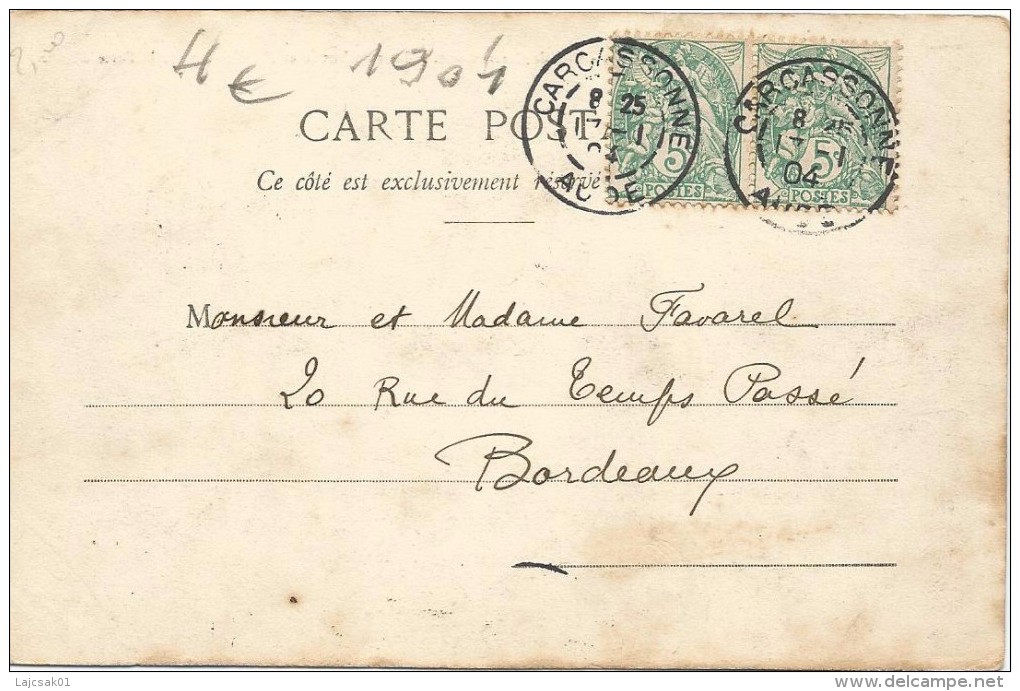 4 € 1904
CARTE POST
Ce côté est exclusivement réservé
CARCASSONNE
8 25
AUDE
5
POSTES
CARCASSONNE
8 25
17 -1
04
AUDE
5
POSTES
Monsieur et Madame Favarel
20 Rue du Temps Passé
Bordeaux
Lajcsak01
delcampe.net